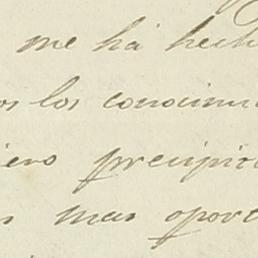 me ha hech
os los conocimi
iero precipic
s mas oport